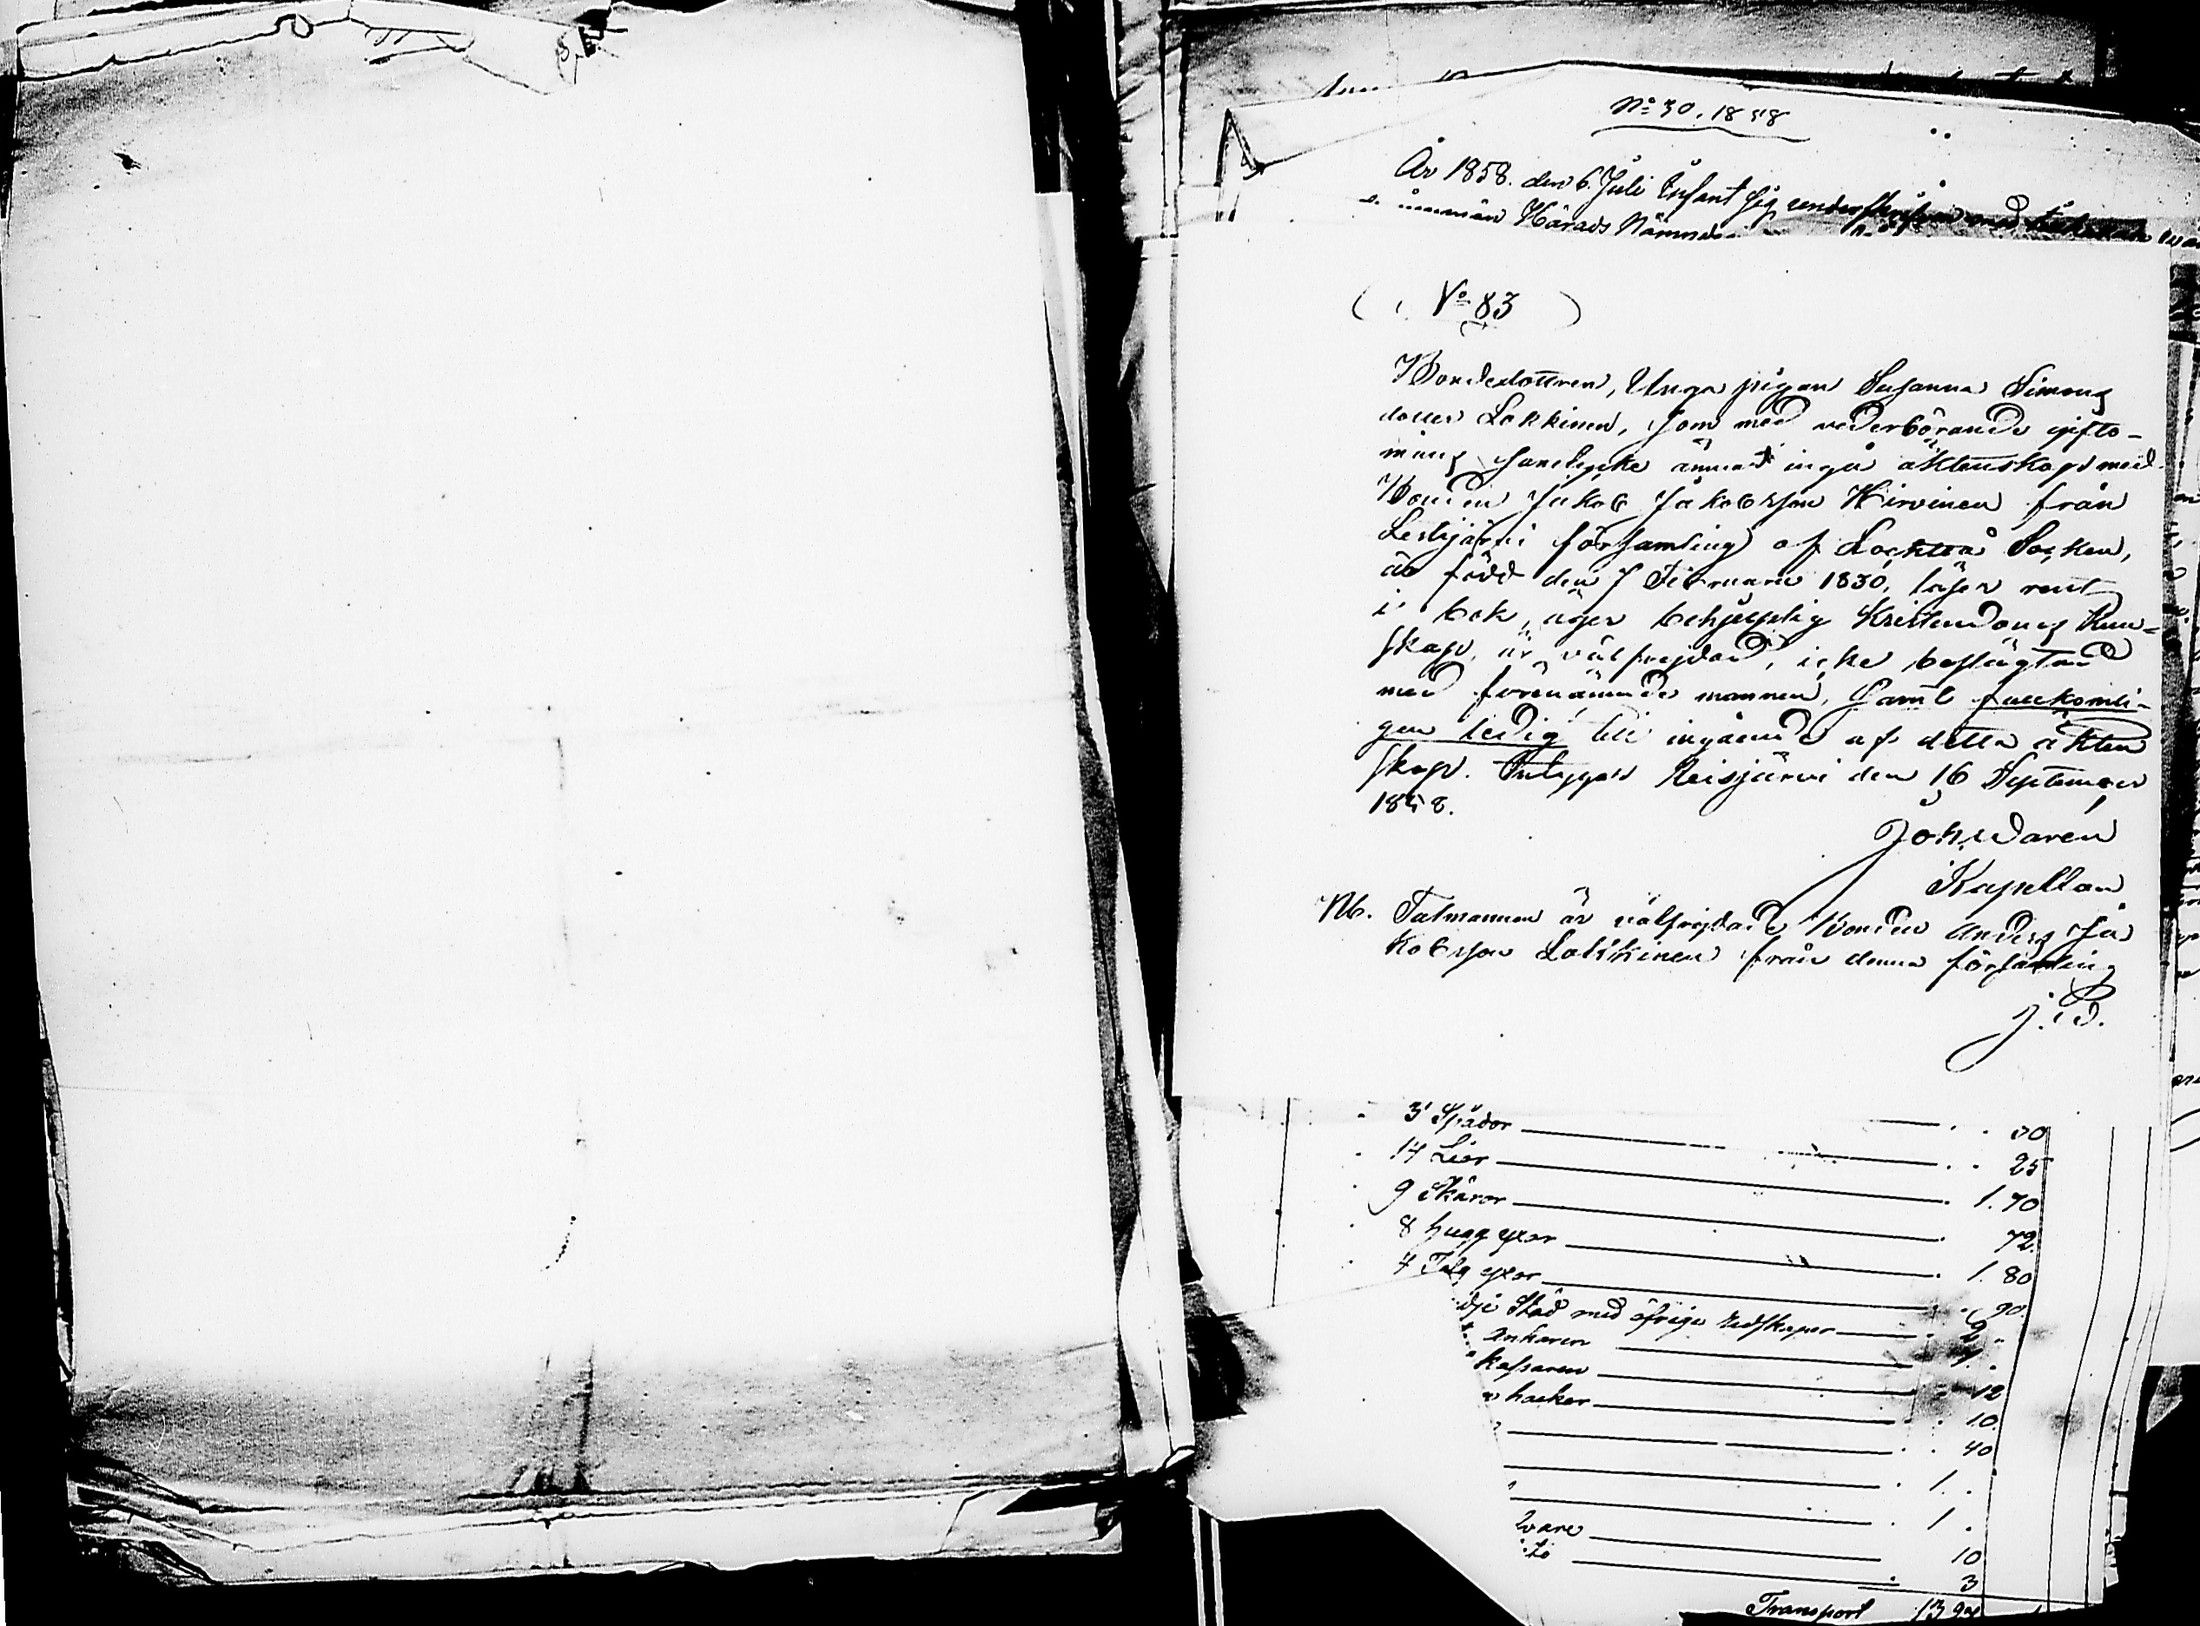 No 30. 1858
År 1858. den 6. Juli Infant sig underskrifven med
Härads Nämnde
No 83
Bondedottren, Unga pigan Susanna Simons
dotter Lokkinen, som med vederbörande gifto-
mans samtycke ämnat ingå äktenskap med
Bonden Jakob Jakobsson Hirvinen från
Lestijärvi församling af Lochteå Socken,
är född den 7 Februari 1830, läser rent
i bok, äger behjelplig Kristendoms kun-
skap, är välfrejdad, icke beslägtad
med förenämnde mannen, samt fullkomli-
gen ledig till ingående af detta äkten
skap. Intygar Reisjärvi den 16 September
1858.
Joh. Daren
Kapellan
Nb. Talmannen är välfrejdade Bonden Anders Ja
kobsson Lokkinen från denna församling
J. D.
3 Spådor
14 Liar 25
9 Skäror 1. 70
8 hugg yxor 72
4 Talg yxor 1. 80
Städ med öfriga redskaper 90
Ankaren 2
kassaren
hackor 12
10
40
1.
1.
10
3
Transport 13